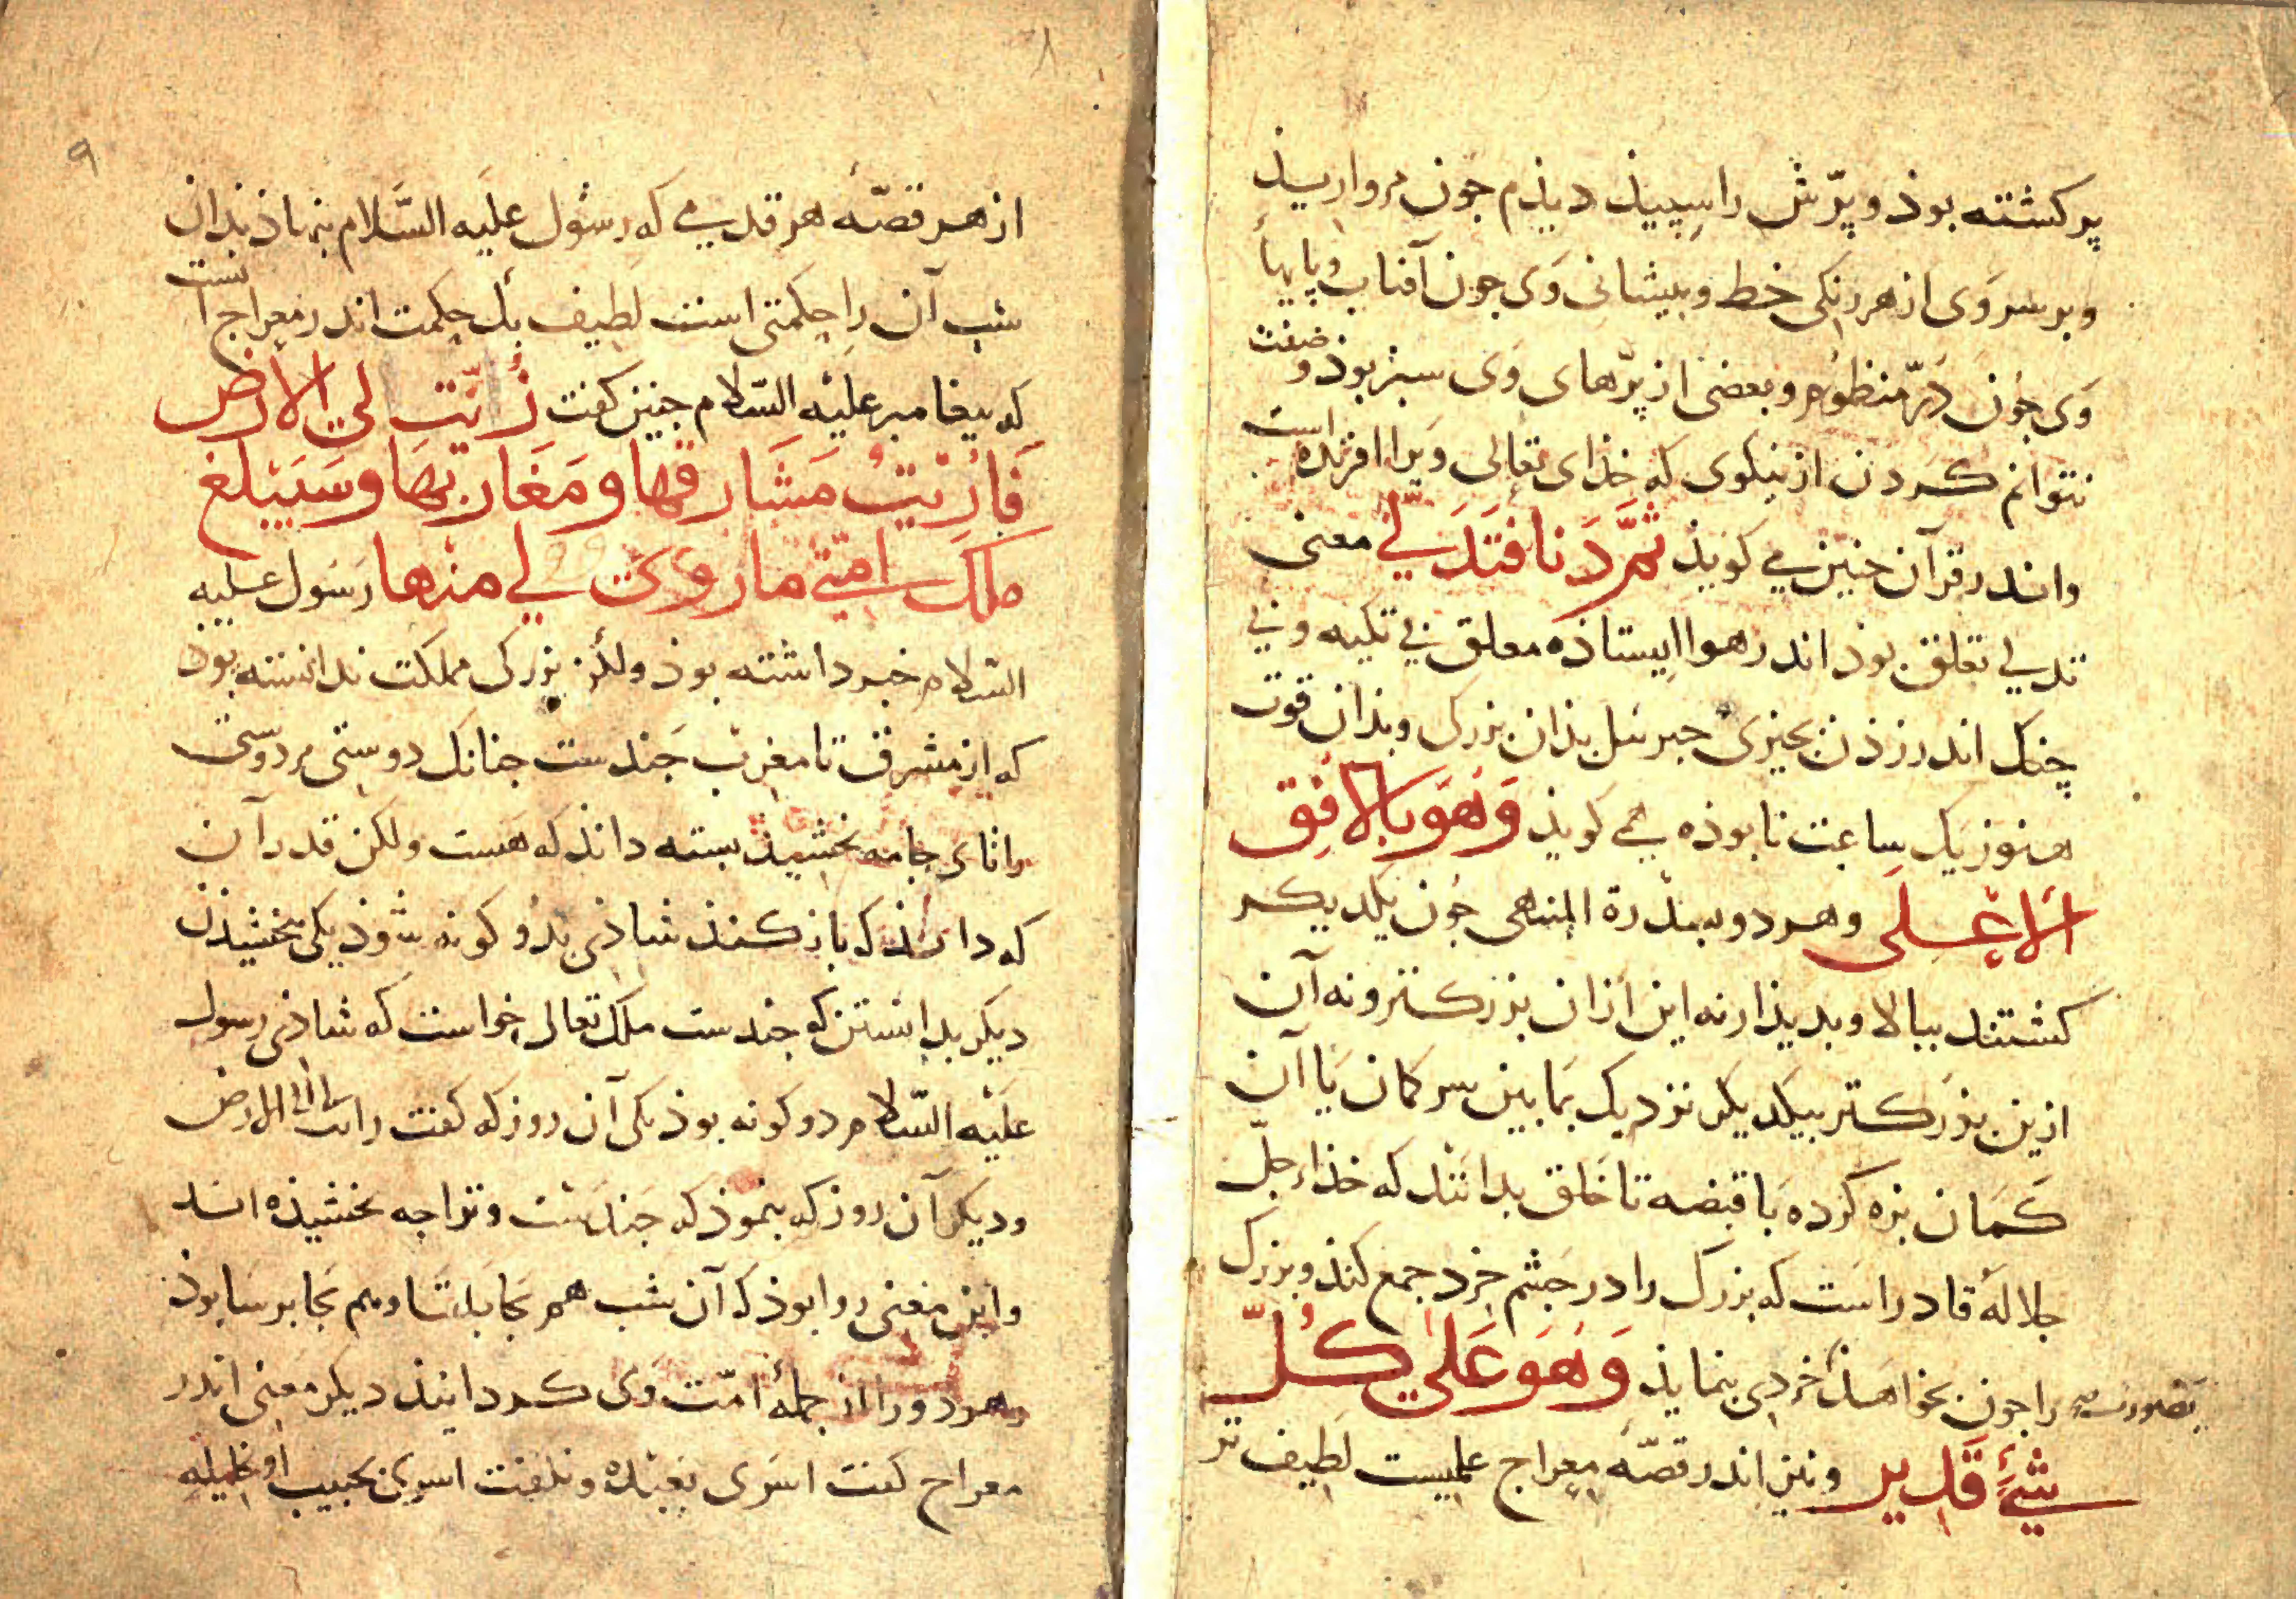 پر کشته بوذ و پرّش را سپیذ دیذم جون مرواریذ
و بر سر وی از هر رنکی خط و بیشانی وی جون آفتاب و پایهاء
وی جون درّ منظوم و بعضی از پرّهای وی سبز بوذ و صفت
نتوانم کردن از نیکوی که خذای تعالی ویرا افریذه است
و اندر قرآن جنین می کویذ ثُمَّ دَنَا فَتَدَلّیٰ معنی
تدلی تعلق بوذ اندر هوا ایستاذه معلق بی تکیه و بی
چنک اندر زذن بچیزی جبرئیل بذان بزرکی و بذان قوت
هنوز یک ساعت نابوذه می کویذ وَهُوَ بِالافُقِ
الاَعْلی و هر دو بسدرة المنتهی جون یکدیکر
کشتند ببالا و بدیذار نه این ازان بزرکتر و نه آن
ازین بزرکتر بیکدیکر نزدیک بمابین سر کمان یا آن
کمان بزه کرده با قبضه تا خلق بدانند که خذاء جلّ
جلاله قادر است که بزرک را در جشم خرد جمع کنذ و بزرک
را جون بخواهذ بصورت خردی بنمایذ وَهُوَ عَلیٰ کُلِّ
شَیْءٍ قَدیر و نیز اندر قصّه معراج علمیست لطیف تر
٨
٩
از هر قصّه هر قدمی که رسول علیه السّلام بنهاذ بذان
شب آن را حکمتی است لطیف یک حکمت اندر معراج آنست
که بیغامبر علیه السّلام جنین کفت زُویَت لی الارْض
فَاُرِیْتُ مَشَارقها و مَغَاربَها وسَیَبْلغ
ملک امتی ما زوی لی منها رسول علیه
السّلام خبر داشته بوذ ولکن بزرکی مملکت ندانسته بوذ
که از مشرق تا مغرب جندست جنانک دوستی مر دوستی
را تای جامه بخشیذ بسته داند که هست ولکن قدر آن
که داند که باز کنذ شاذی بذو کونه شوذ یکی بخشیذن
دیکر بدانستن که جندست ملک تعالی خواست که شاذی رسول
علیه السّلام دو کونه بوذ یکی آن روز که کفت زویت لی الارض
و دیکر آن روز که بنموذ که جندست و ترا جه بخشیذه اند
و این معنی روا بوذ که آن شب هم بجابلسا و هم بجابرسا بوذ
و هر دو را از جملهٔ امّت وی کردانیذ دیکر معنی اندر
معراج کفت اسری بعبده و نکفت اسری بحبیبه او خلیله